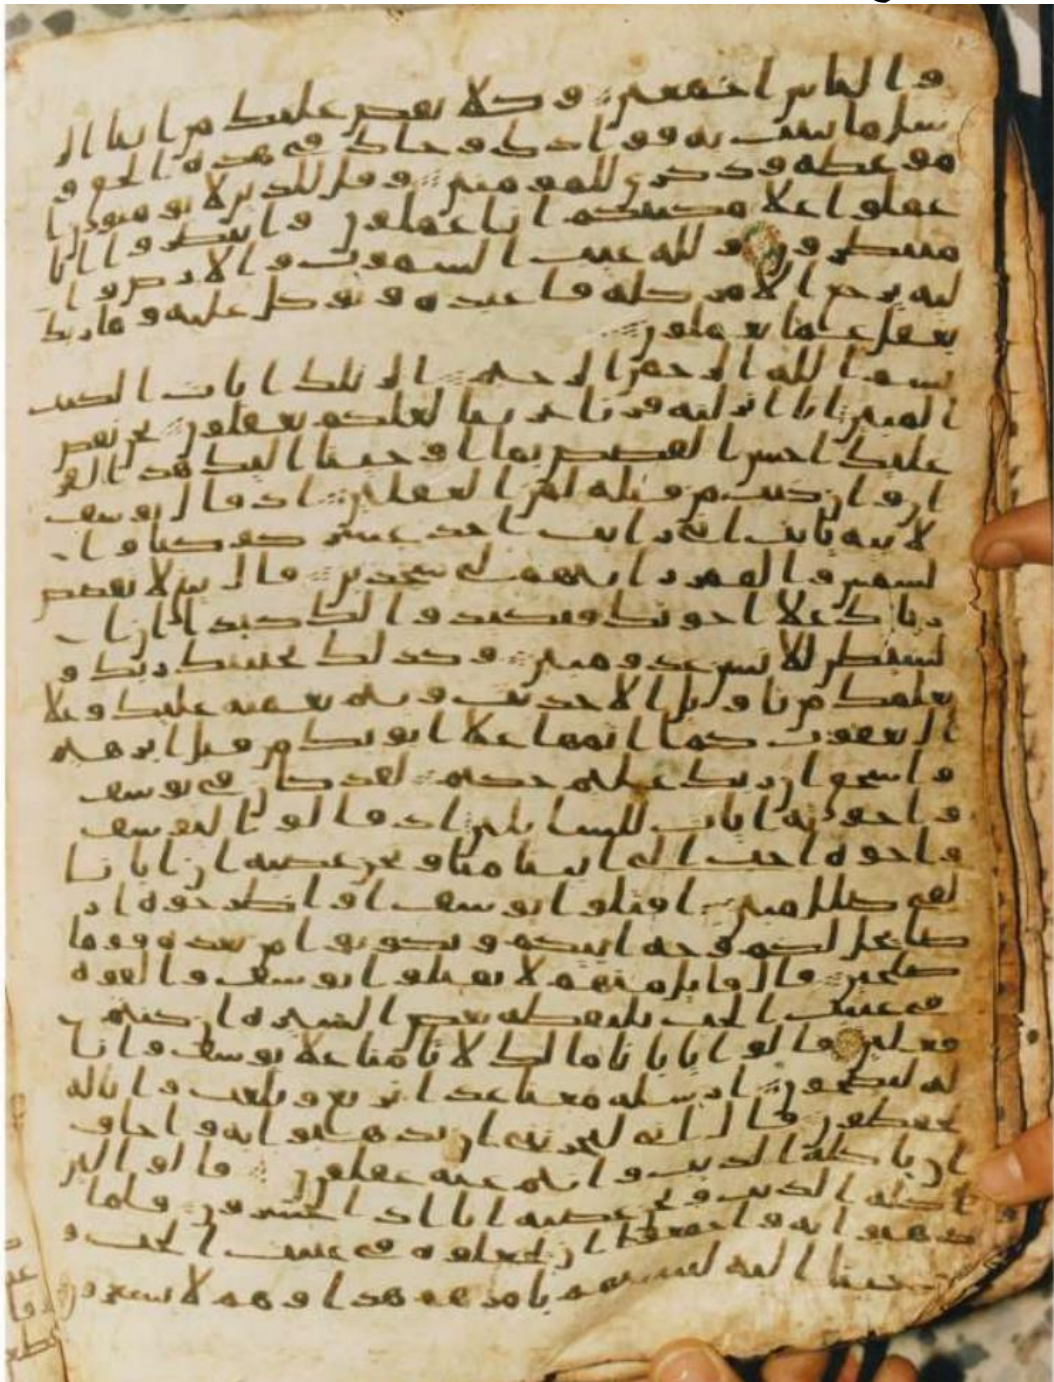 و الناس اجمعين و كلا نقص عليك من انبا الر
سل ما نثبت به فوادك و جاك في هذه الحق و
موعظة وذكرى للمومنين وقل للذين لا يومنون ا
عملوا علا مكنتكم انا عملون وانتظروا انا
منتظرون ولله غيب السموت والارض وا
ليه يرجع الامر كله فاعبده وتوكل عليه وما ربك
بغفل عما تعملون
بسم الله الرحمن الرحيم الر تلك ايات الكتب
المبين انا انزلنه قرنا عربيا لعلكم تعقلون نحن نقص
عليك احسن القصص بما اوحينا اليك هذا القر
ان وان كنت من قبله لمن الغفلين اذ قال يوسف
لابيه يابت اني رايت احد عشر كوكبا وا
لشمس والقمر رايتهم لي سجدين قال يبني لا تقصص
رياك علا اخوتك فيكيدوا لك كيدا ان ا
لشيطن للانسن عدو مبين وكذلك يجتبيك ربك و
يعلمك من تاويل الاحديث ويتم نعمته عليك وعلا
ال يعقوب كما اتمها علا ابويك من قبل ابرهيم
واسحق ان ربك عليم حكيم لقد كان في يوسف
واخوته ايات للسايلين اذ قالوا ليوسف
واخوه احب الى ابينا منا ونحن عصبة ان ابانا
لفي ضلل مبين اقتلوا يوسف او اطرحوه ار
ضا يخل لكم وجه ابيكم وتكونوا من بعده قوما
صلحين قال قايل منهم لا تقتلوا يوسف والقوه
في غيبت الجب يلتقطه بعض السيرة ان كنتم
فعلين قالوا يابانا ما لك لا تامنا علا يوسف وانا
له لنصحون ارسله معنا غدا يرتع ويلعب وانا له
لحفظون قال اني ليحزنني ان تذهبوا به واخاف
ان ياكله الذيب وانتم عنه غفلون قالوا لين
اكله الذيب ونحن عصبة انا اذا لخسرون فلما
ذهبوا به واجمعوا ان يجعلوه في غيبت الجب و
اوحينا اليه لتنبينهم بامرهم هذا وهم لا يشعرون